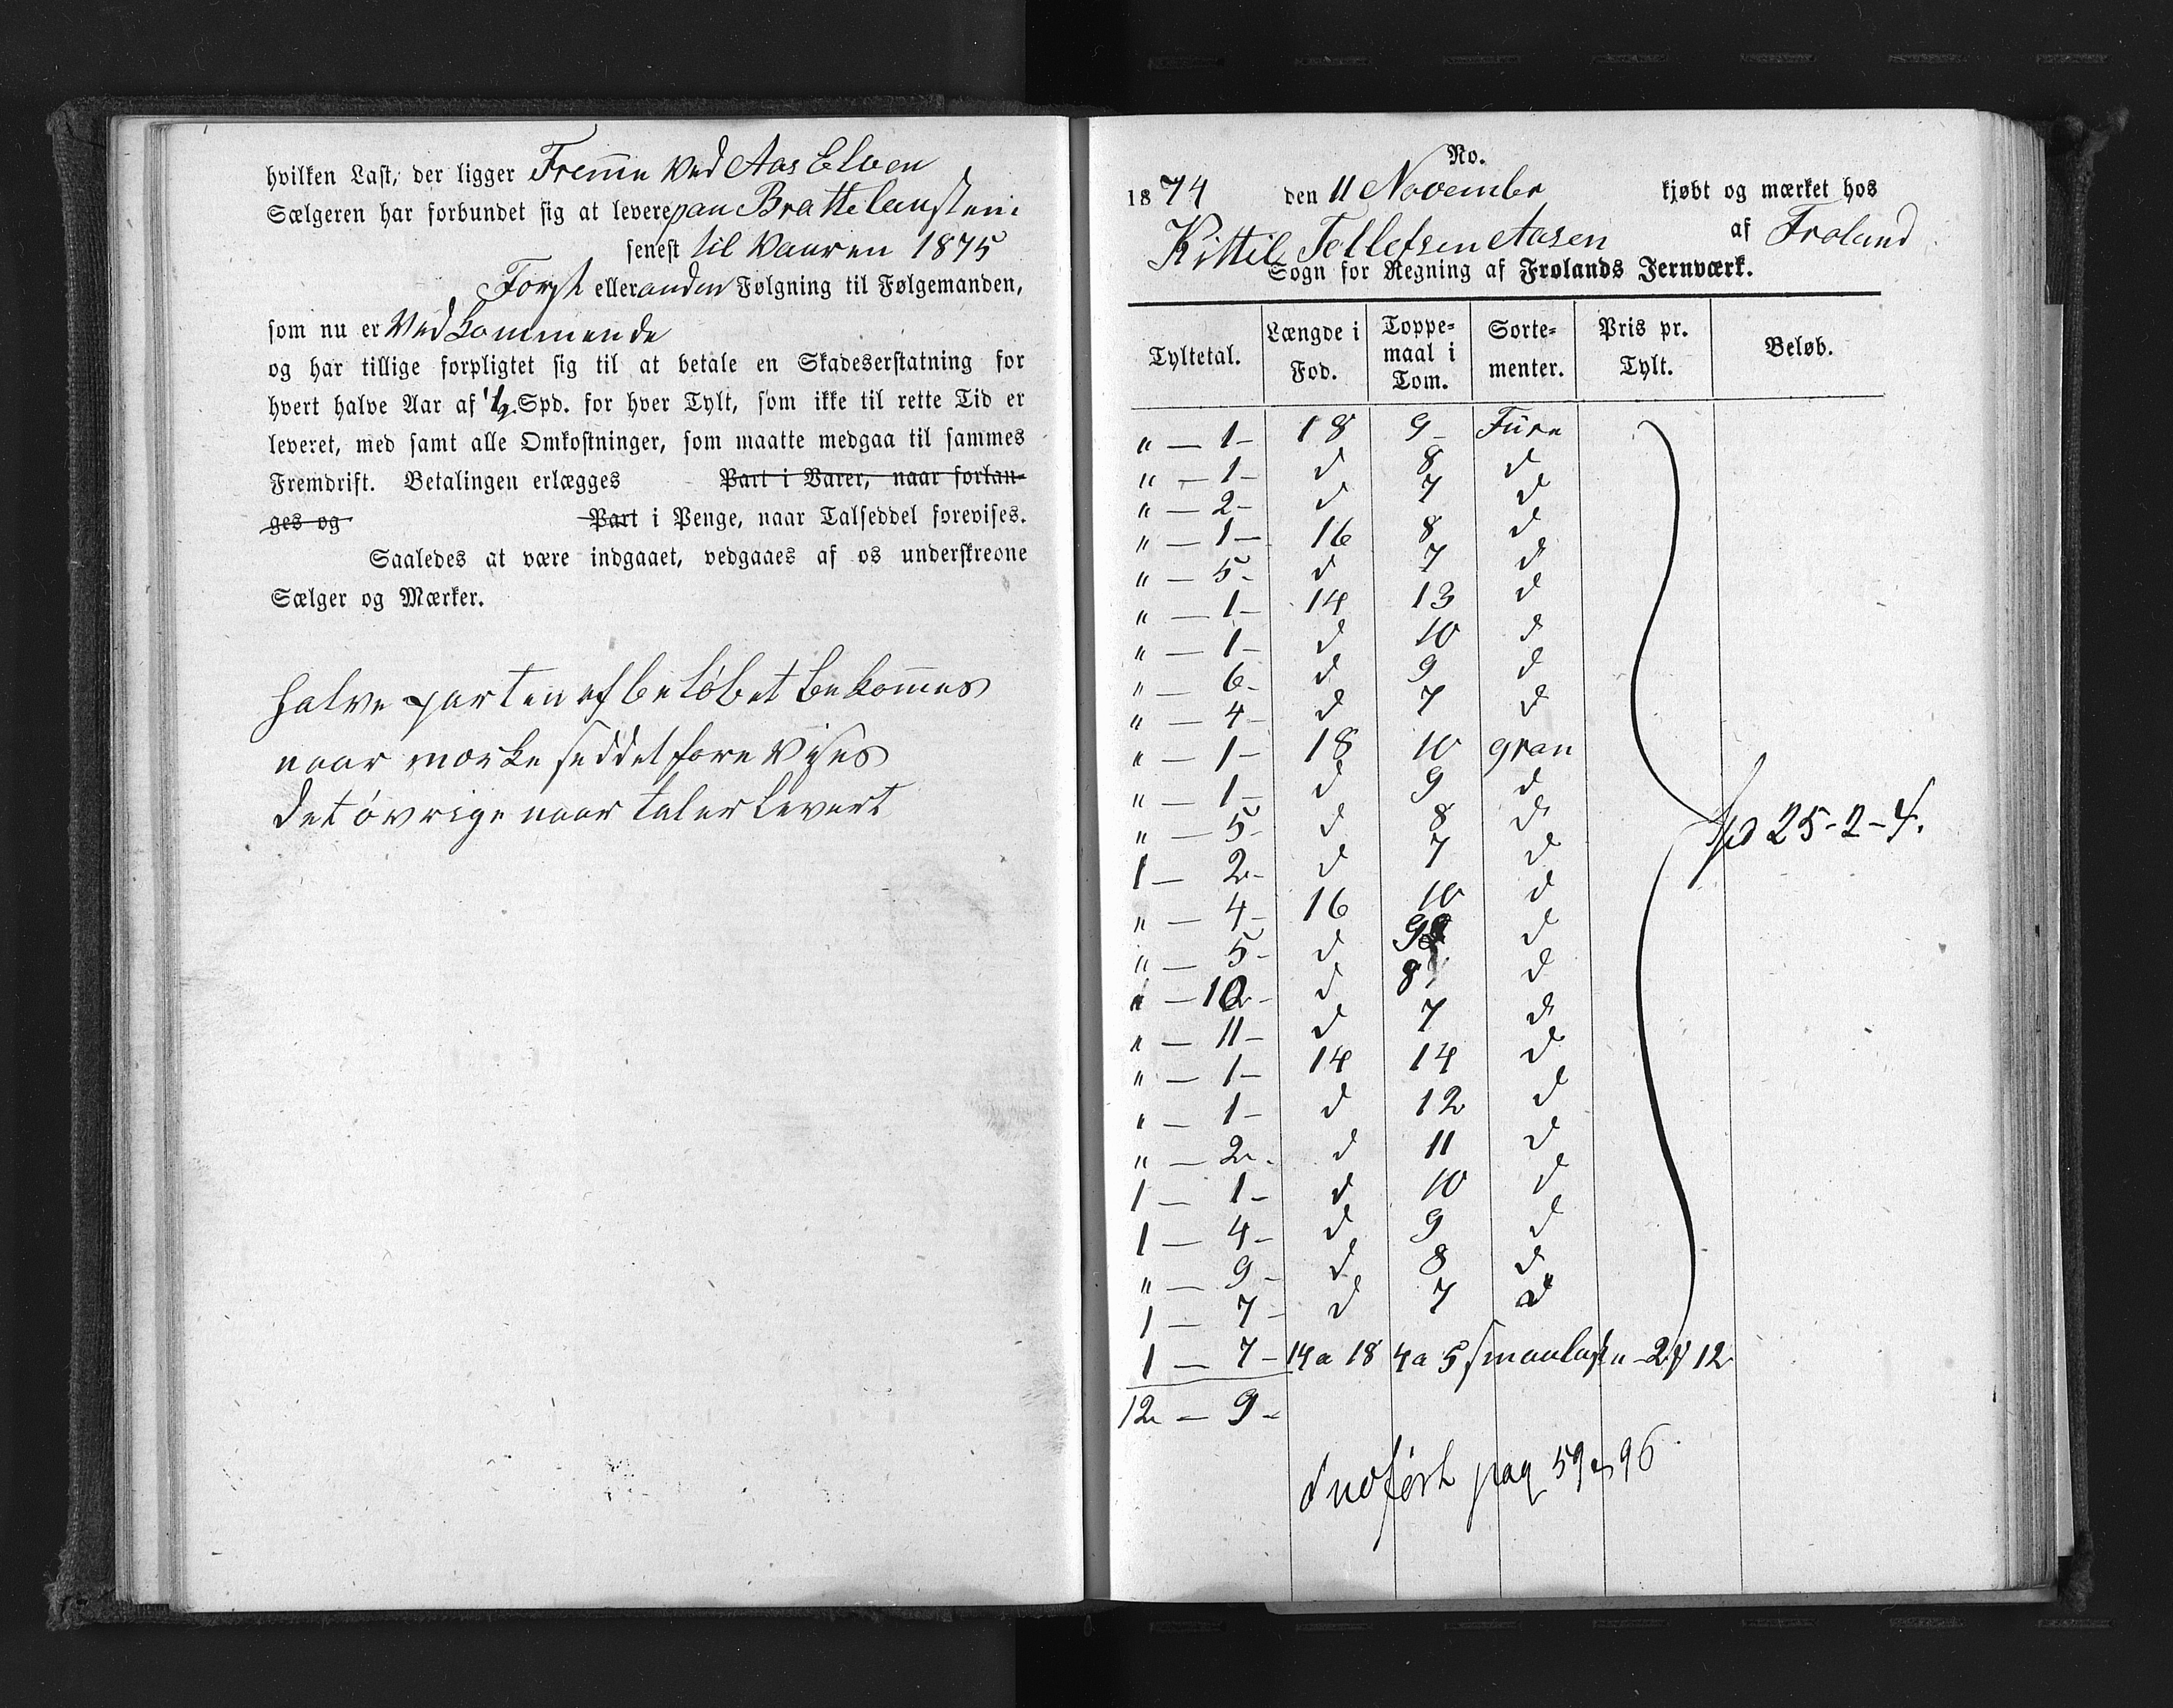 hvilken Last, der ligger Fremme ved Aas Elven
Sælgeren har forbundet sig at levere paa Brattelansten
senest til Vaaren 1875
Forst eller anden Følgning til Følgemanden,
som nu er Vedkommende
og har tillige forpligtet sig til at betale en Skadeserstatning for
hvert halve Aar af 1/2 Spd. for hver Tylt, som ikke til rette Tid er
leveret, med samt alle Omkostninger, som maatte medgaa til sammes
Fremdrift. Betalingen erlægges Part i Varer, naar forlan-
ges og Part i Penge, naar Talseddel forevises.
Saaledes at være indgaaet, vedgaaes af os underskrevne
Sælger og Mærker.
halve parten af beløbet bekommes
naar mærke seddel fore vises
det øvrige naar tal er levert
No.
1874 den 11 November kjøbt og mærket hos
Kittil Tellefsen Aasen af Froland
Sogn for Regning af Frolands Jernværk.
Tyltetal. Længde i Fod. Toppe-maal i Tom. Sorte-menter. Pris pr. Tylt. Beløb.
" — 1 - 18 9 - Furu
" — 1 - d 8 d
" — 2 - d 7 d
" — 1 — 16 8 d
" — 5 - d 7 d
" — 1 - 14 13 d
" — 1 - d 10 d
" — 6 - d 9 d
" — 4 - d 7 d
" — 1 - 18 10 gran
" — 1 - d 9 d
" — 5 - d 8 d
Spd 25-2-4.
1 — 2 - d 7 d
" — 4 - 16 10 d
" — 5 - d 9 d
" — 10 - d 8 d
" — 11 - d 7 d
" — 1 - 14 14 d
" — 1 - d 12 d
" — 2 - d 11 d
1 — 1 - d 10 d
1 — 4 - d 9 d
" — 9 - d 8 d
1 — 7 - d 7 d
1 — 7 - 14 a 18 4 a 5 smaalast " - 2 12
12 — 9 -
Indført pag 59 & 96